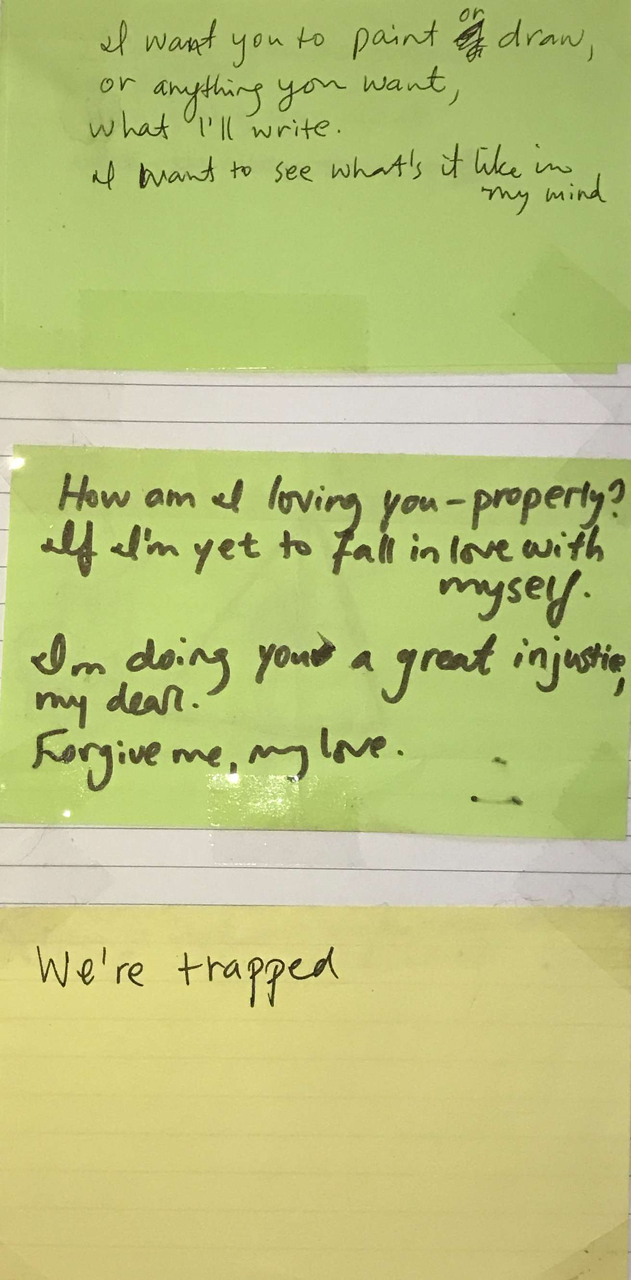 I want you to paint or draw,
or anything you want,
what I'll write.
I want to see what's it like in
my mind
How am I loving you-properly?
If I'm yet to fall in love with
myself.
I'm doing you a great injustie,
my dear.
Forgive me, my love.
We're trapped